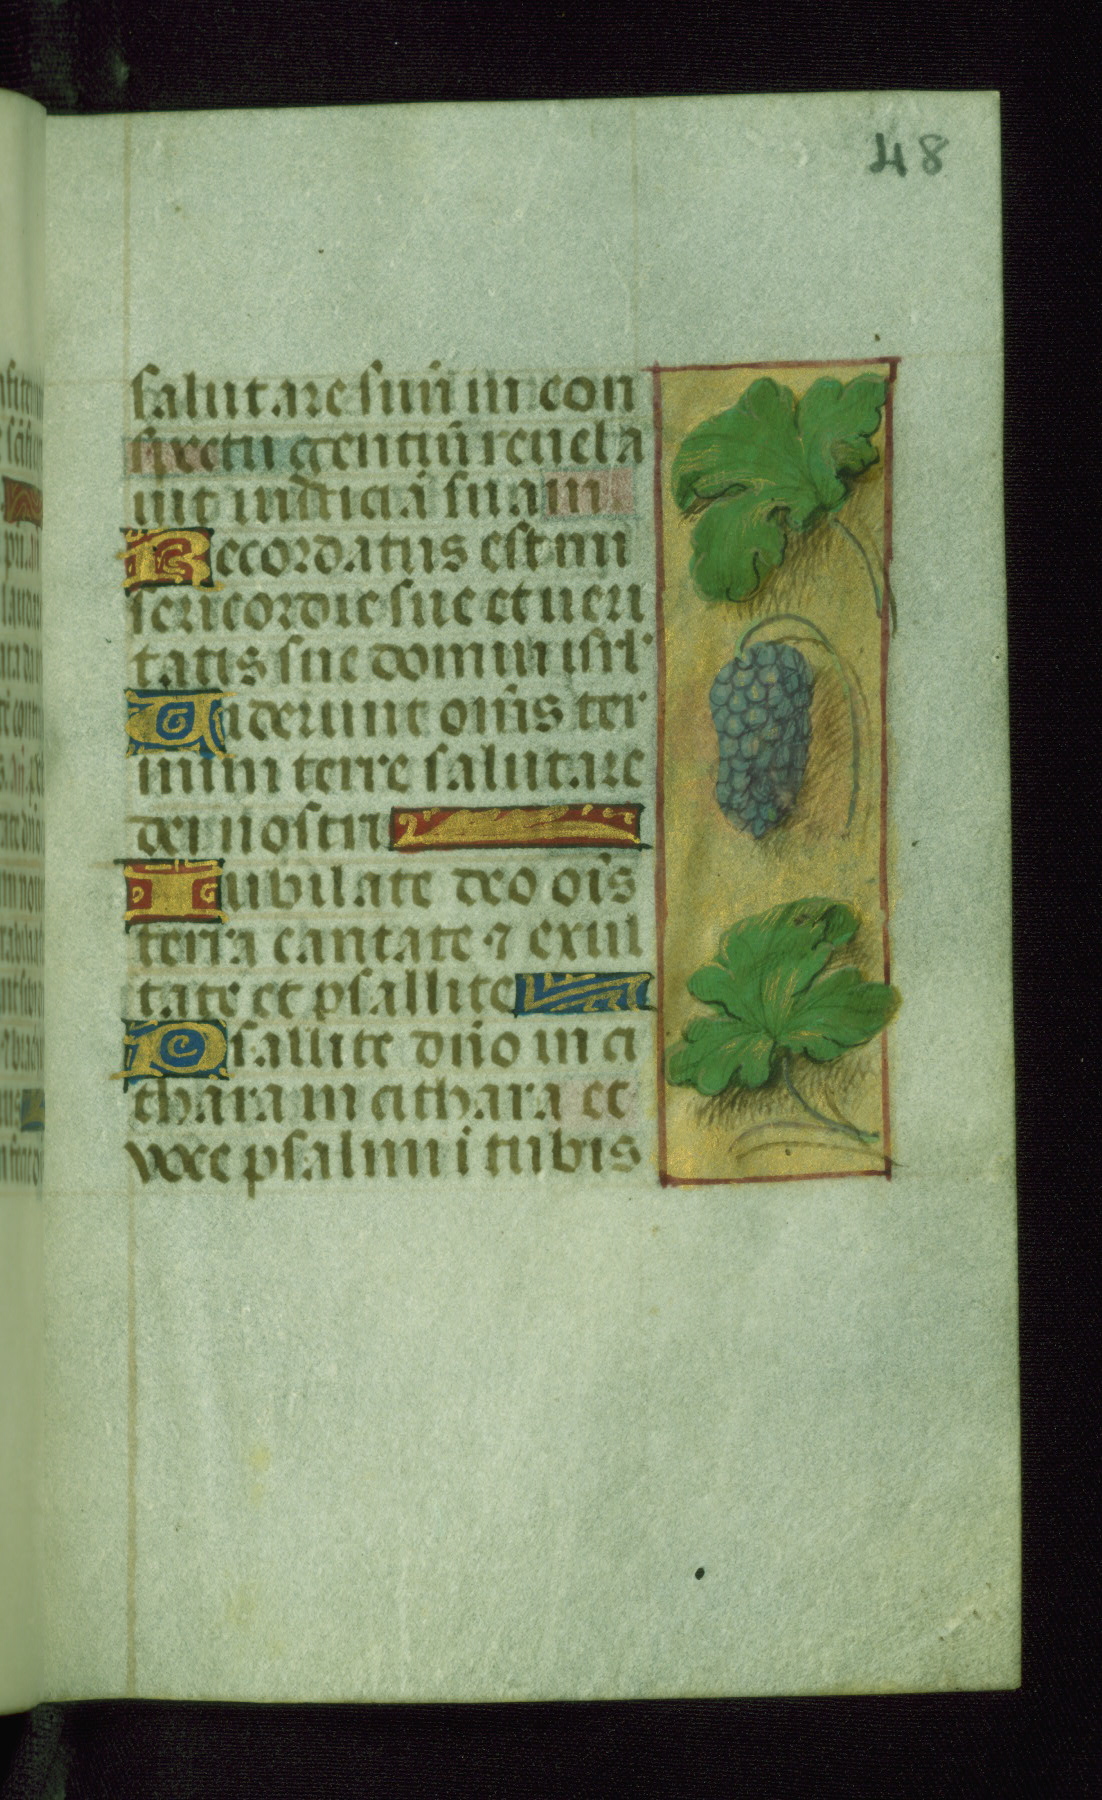 48
salutare suū in con
spectu gentiū reuela
uit iusticiā suam
Recordatus est mi
sericordie sue et ueri
tatis sue domui isrl'
Uiderunt om̄s ter
mini terre salutare
dei nostri
Iubilate deo ois̄
terra cantate ⁊ exul
tate et psallite
Psallite dño in ci
thara in cithara et
voce psalmi i tubis